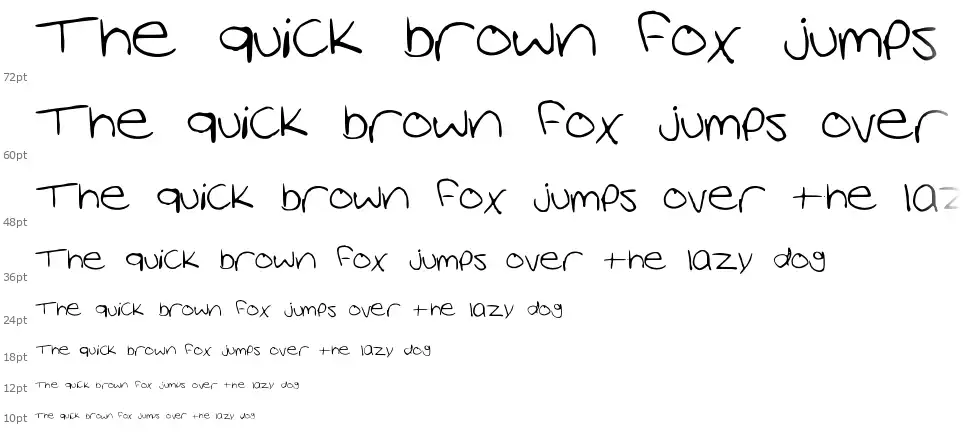 The quick brown fox jumps
72pt
The quick brown fox jumps over
60pt
The quick brown fox jumps over the laz
48pt
The quick brown fox jumps over the lazy dog
36pt
The quick brown fox jumps over the lazy dog
24pt
The quick brown fox jumps over the lazy dog
18pt
The quick brown fox jumps over the lazy dog
12pt
The quick brown fox jumps over the lazy dog
10pt